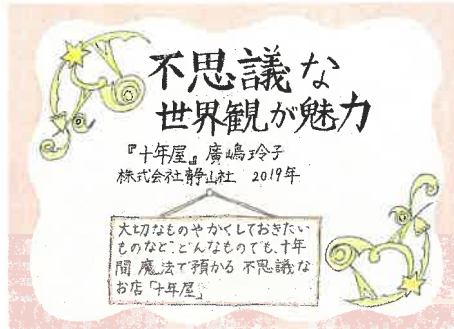 不思議な
世界観が魅力
『十年屋』廣嶋玲子
株式会社静山社 2019年
大切なものやかくしておきたい
ものなど、どんなものでも、十年
間魔法で預かる不思議な
お店「十年屋」